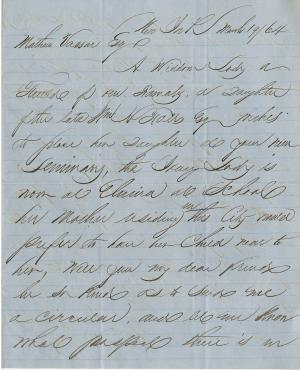 New York March 19/64
Mathew Vassar
Esq
A Widow Lady a
friend of our Family, a Daughter
of the late Wm A Esq wishes
to place her Daughter at your new
Seminary, the young Lady is
now at Elmira at School
her Mother residing in this City would
prefer to have her Child near to
her, will you my dear Friend
be so kind as to send me
a circular, and let me know
what prospect there is in